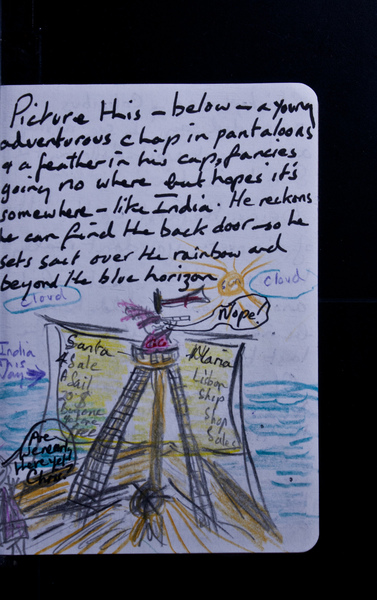 Picture this - below - a young
adventurous chap in pantaloons
& a feather in his cap, fancies
going no where but hopes it's
somewhere - like India. He reckons
he can find the back door - so he
sets sail over the rainbow and
beyond the blue horizon
Cloud
Sun
Cloud
Nope!
India
This
Way
Santa
4 Sale
A Sail
Maria
Lisbon
Shop
Shop
Sales
Are
We nearly
there yet